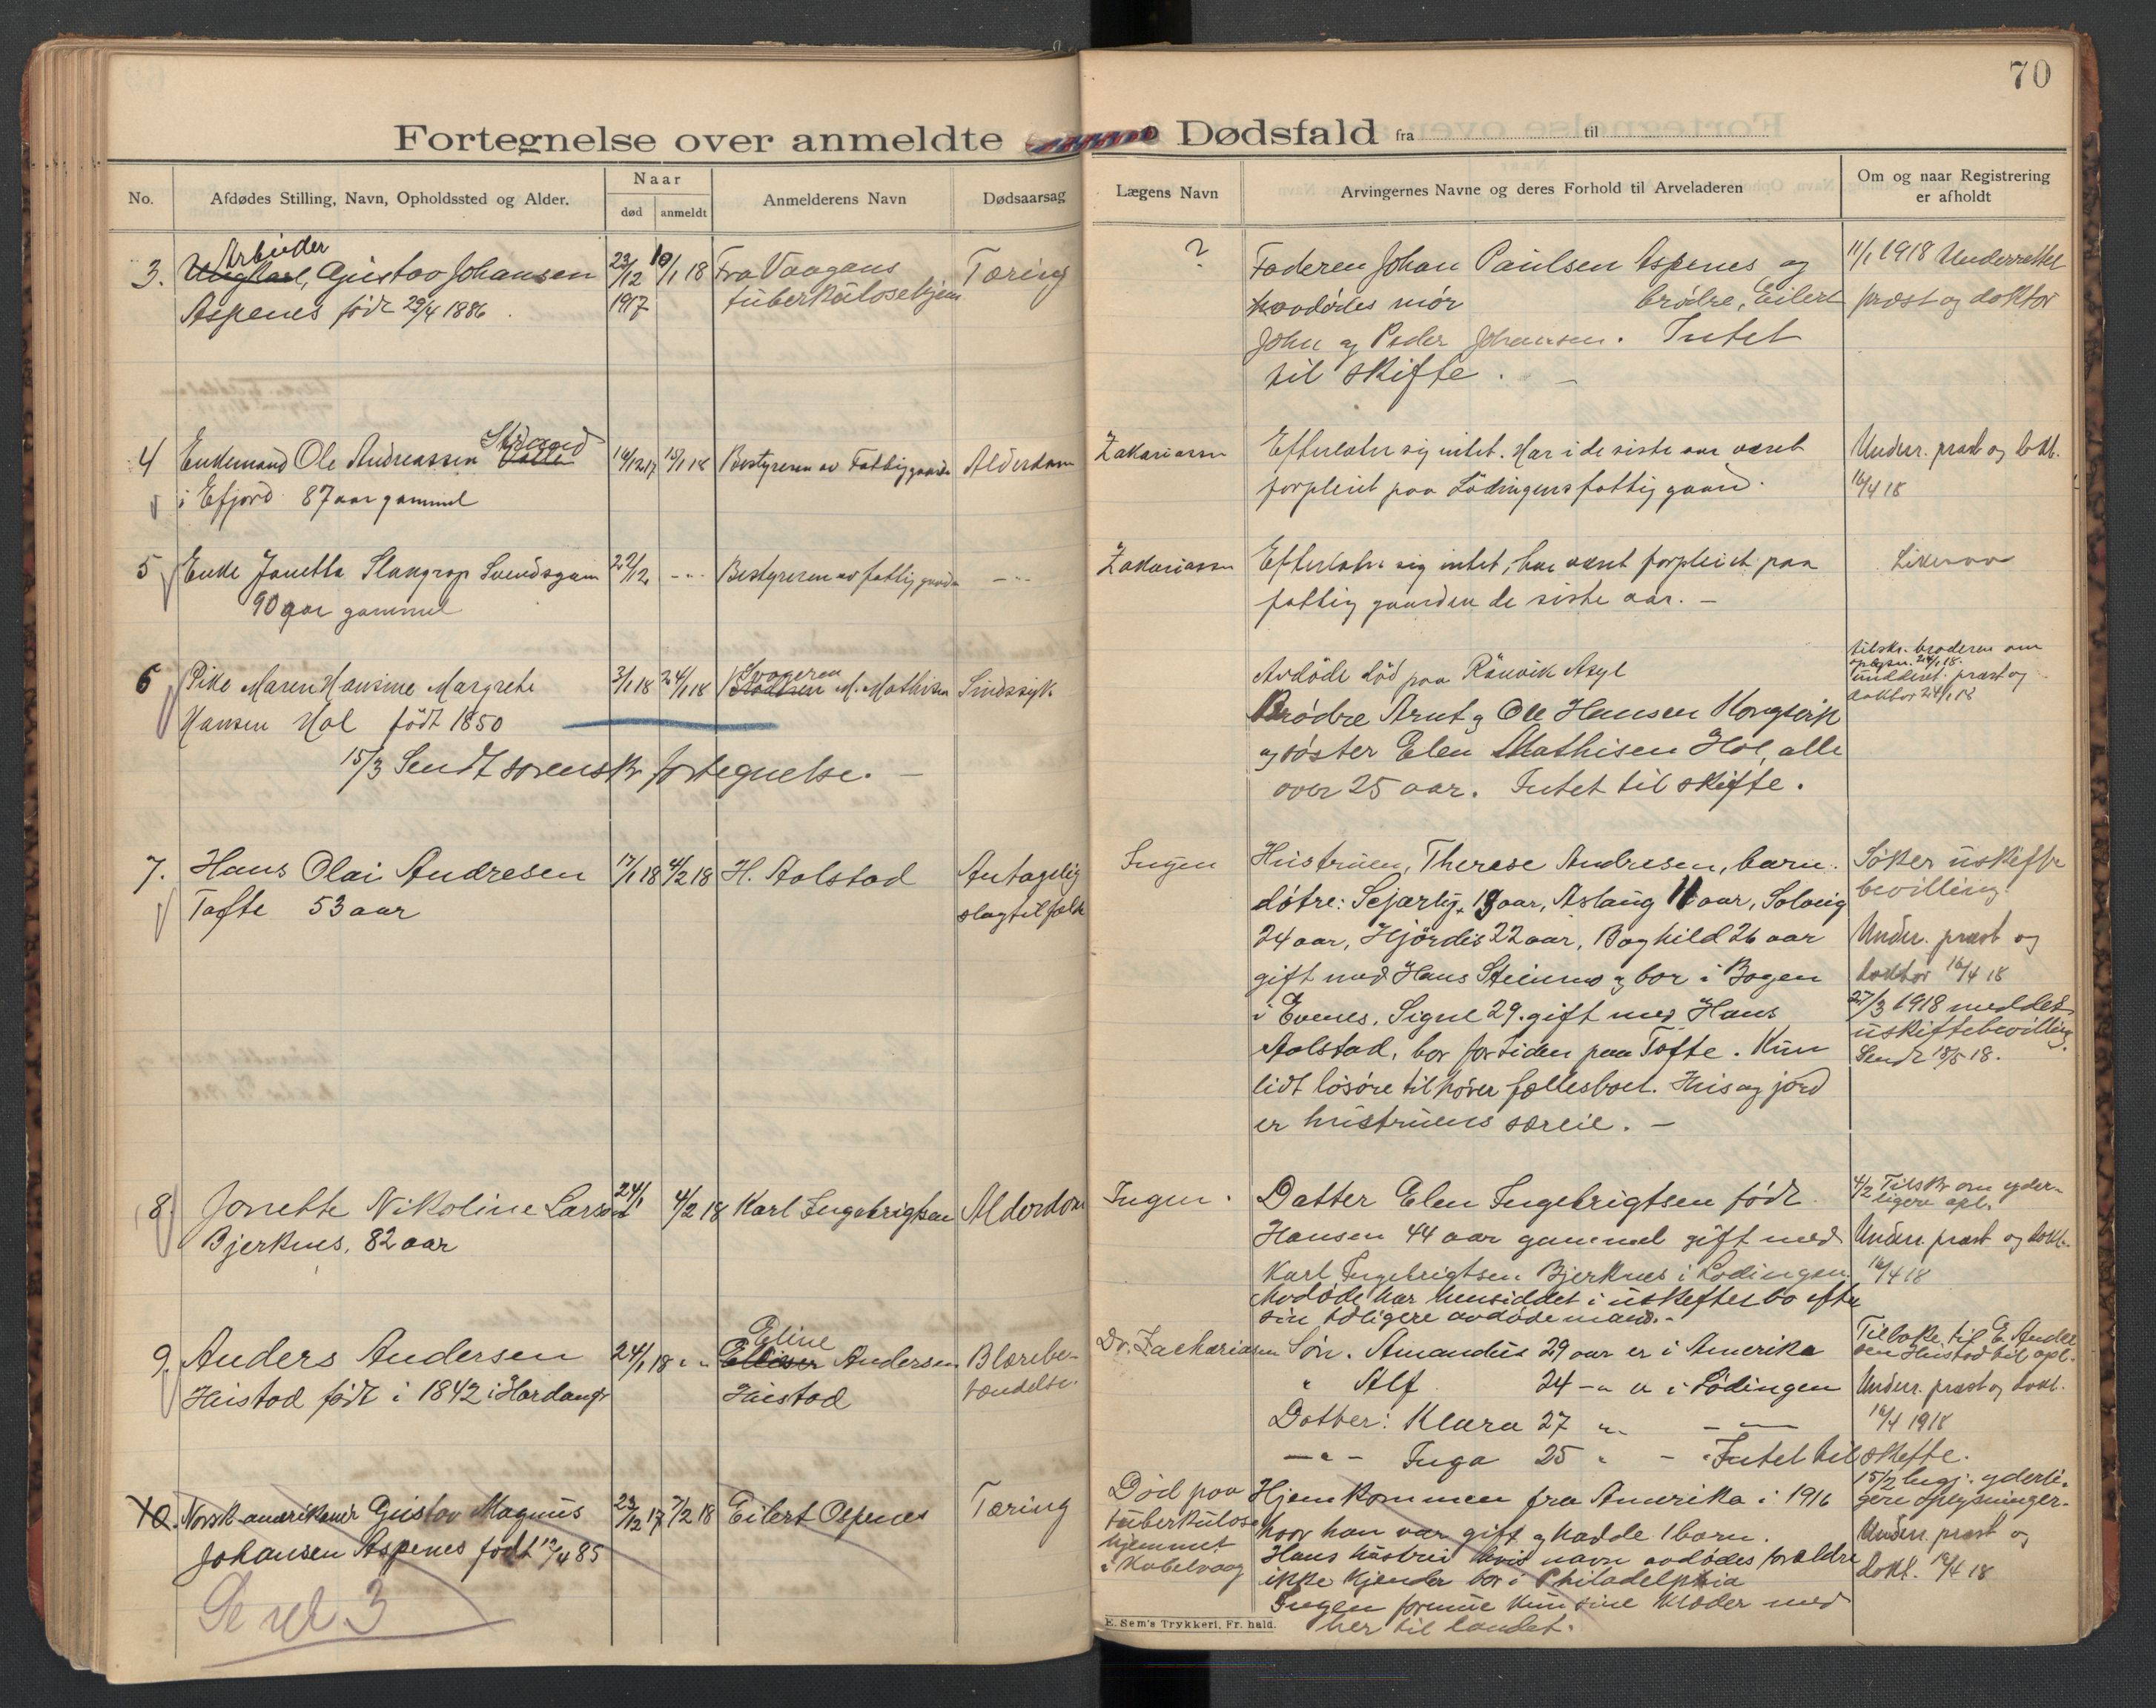 70
Fortegnelse over anmeldte Dødsfald fra til
No.
Afdødes Stilling, Navn, Opholdssted og Alder.
Naar
død
anmeldt
Anmelderens Navn
Dødsaarsag
Lægens Navn
Arvingernes Navne og deres Forhold til Arveladeren
Om og naar Registrering
er afholdt
Arbeider
3. Ungkarl, Gustav Johansen
Aspenes født 29/4 1886.
23/12
1917
10/1 18
Fra Vaagans
tuberkulosehjem
Tæring
?
Faderen Johan Paulsen Aspenes og
avdødes mor brødre, Eilert
John og Peder Johansen. Intet
til skifte. -
11/1 1918 Underrettet
præst og doktor
4 Enkemand Ole Andreassen Strand
i Efjord 87 aar gammel
16/12 17
15/1 18
Bestyreren av Fattiggaarden
Alderdom
Zakariassen
Efterlater sig intet. Har i de siste aar været
forpleiet paa Lödingens fattiggaard.
Underr. præst og dokt.
16/4 18
5 Enke Janetta Slangrop Svendsgam
90 aar gammel
22/12
-"-
Bestyreren av fattiggaarden
-"-
Zakariassen
Efterlater sig intet, har været forpleiet paa
fattiggaarden de siste aar. -
Likesaa
6 Pike Maren Hansine Margrete
Hansen Hol født 1850
3/1 18
24/1 18
Svogeren
M. Mathisen
Sindssyk
15/3 Sendt sorenskr fortegnelse. -
Avdøde død paa Rönvik Asyl
Brødre Arnt og Ole Hansen Kongsvik
og søster Elen Mathisen Hol, alle
over 25 aar. Intet til skifte.
tilskr. broderen om
oplysn. 24/1 18.
underret. præst og
doktor 24/1 18
7. Hans Olai Andresen
Tofte 53 aar
17/1 18
4/2 18
H. Aalstad
Antagelig
slagtilfælde
Ingen
Hustruen, Therese Andresen, barn:
døtre: Sejarlij, 19 aar, Aslaug 11 aar, Solveig
24 aar, Hjördis 22 aar, Boghild 26 aar
gift med Hans Steinmo og bor i Bogen
i Evenes, Signe 29. gift med Hans
Aalstad, bor for tiden paa Tofte. Kun
lidt løsøre tilhører fællesboet. Hus og jord
er hustruens særeie. -
Søker uskifte
bevilling.
Under. præst og
doktor 16/4 18
27/3 1918 meddelt
uskiftebevilling.
Sendt 18/5 18.
8. Jonette Nikoline Larsen
Bjerknes, 82 aar
24/1
4/2 18
Karl Ingebrigtsen
Alderdom
Ingen.
Datter Elen Ingebrigtsen født
Hansen 44 aar gammel gift med
Karl Ingebrigtsen Bjerknes i Lødingen.
Avdøde har hensiddet i uskiftet bo efter
sin tidligere avdøde mand. -
4/2 Tilskr om yder-
ligere opl.
Underr. præst og dokt.
16/4 18
9. Anders Andersen
Huistad født i 1842 i Hardanger
24/1 18
" "
Eline
Andersen
Huistad
Blærebe-
tændelse.
Dr. Zachariassen
Søn. Amandus 29 aar er i Amerika
" Alf 24 -"- i Lødingen
Datter: Klara 27 "- -"-
-"- Inga 25 " - " Intet til skifte.
Tilbake til E. Ander
sen Huistad til opl.
Underr. præst og dokt.
16/4 1918
10. Norsk-amerikaner Gustav Magnus
Johansen Aspenes født 12/4 85
Se nr 3
23/12 17
7/2 18
Eilert Ospenes
Tæring
Død paa
tuberkulose
hjemmet
i Kabelvaag
Hjemkommen fra Amerika i 1916
hvor han var gift og hadde 1 barn.
Hans hustru hvis navn avdødes forældre
ikke kjender bor i Philadelphia
Ingen formue kun sine klæder med
her til landet.
15/2 beg. yderli-
gere oplysninger.
Underr. præst og
dokt. 16/4 18
E. Sem's Trykkeri, Fr.hald.